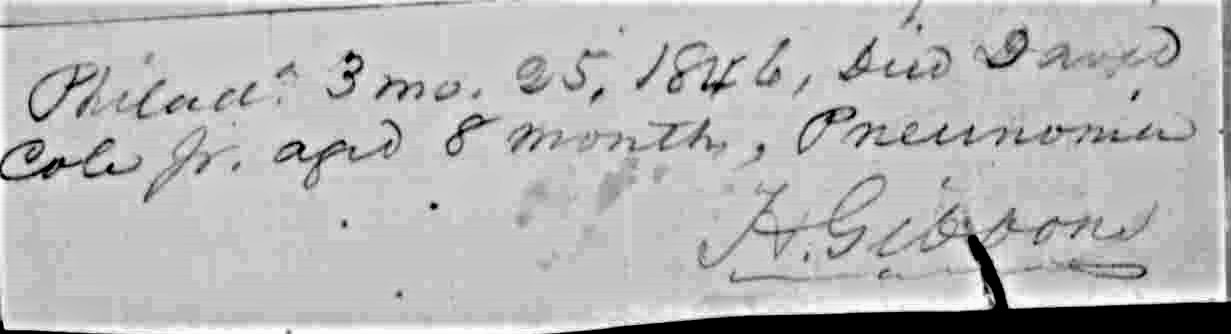 Philad.ª 3 mo. 25, 1846, Died David
Cole Jr. aged 8 months, Pneumonia
H. Gibbons